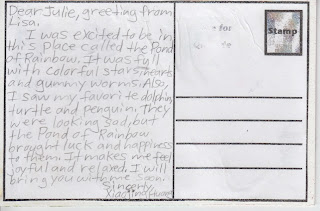 Dear Julie, greeting from
Lisa.
I was excited to be in
this place called the Pond
of Rainbow. It was full
with colorful stars, hearts
and gummy worms. Also,
I saw my favorite dolphin,
turtle and penguin. They
were looking sad, but
the Pond of Rainbow
brought luck and happiness
to them. It makes me feel
joyful and relaxed. I will
bring you with me soon.
Sincerly,
Huang
for
Stamp